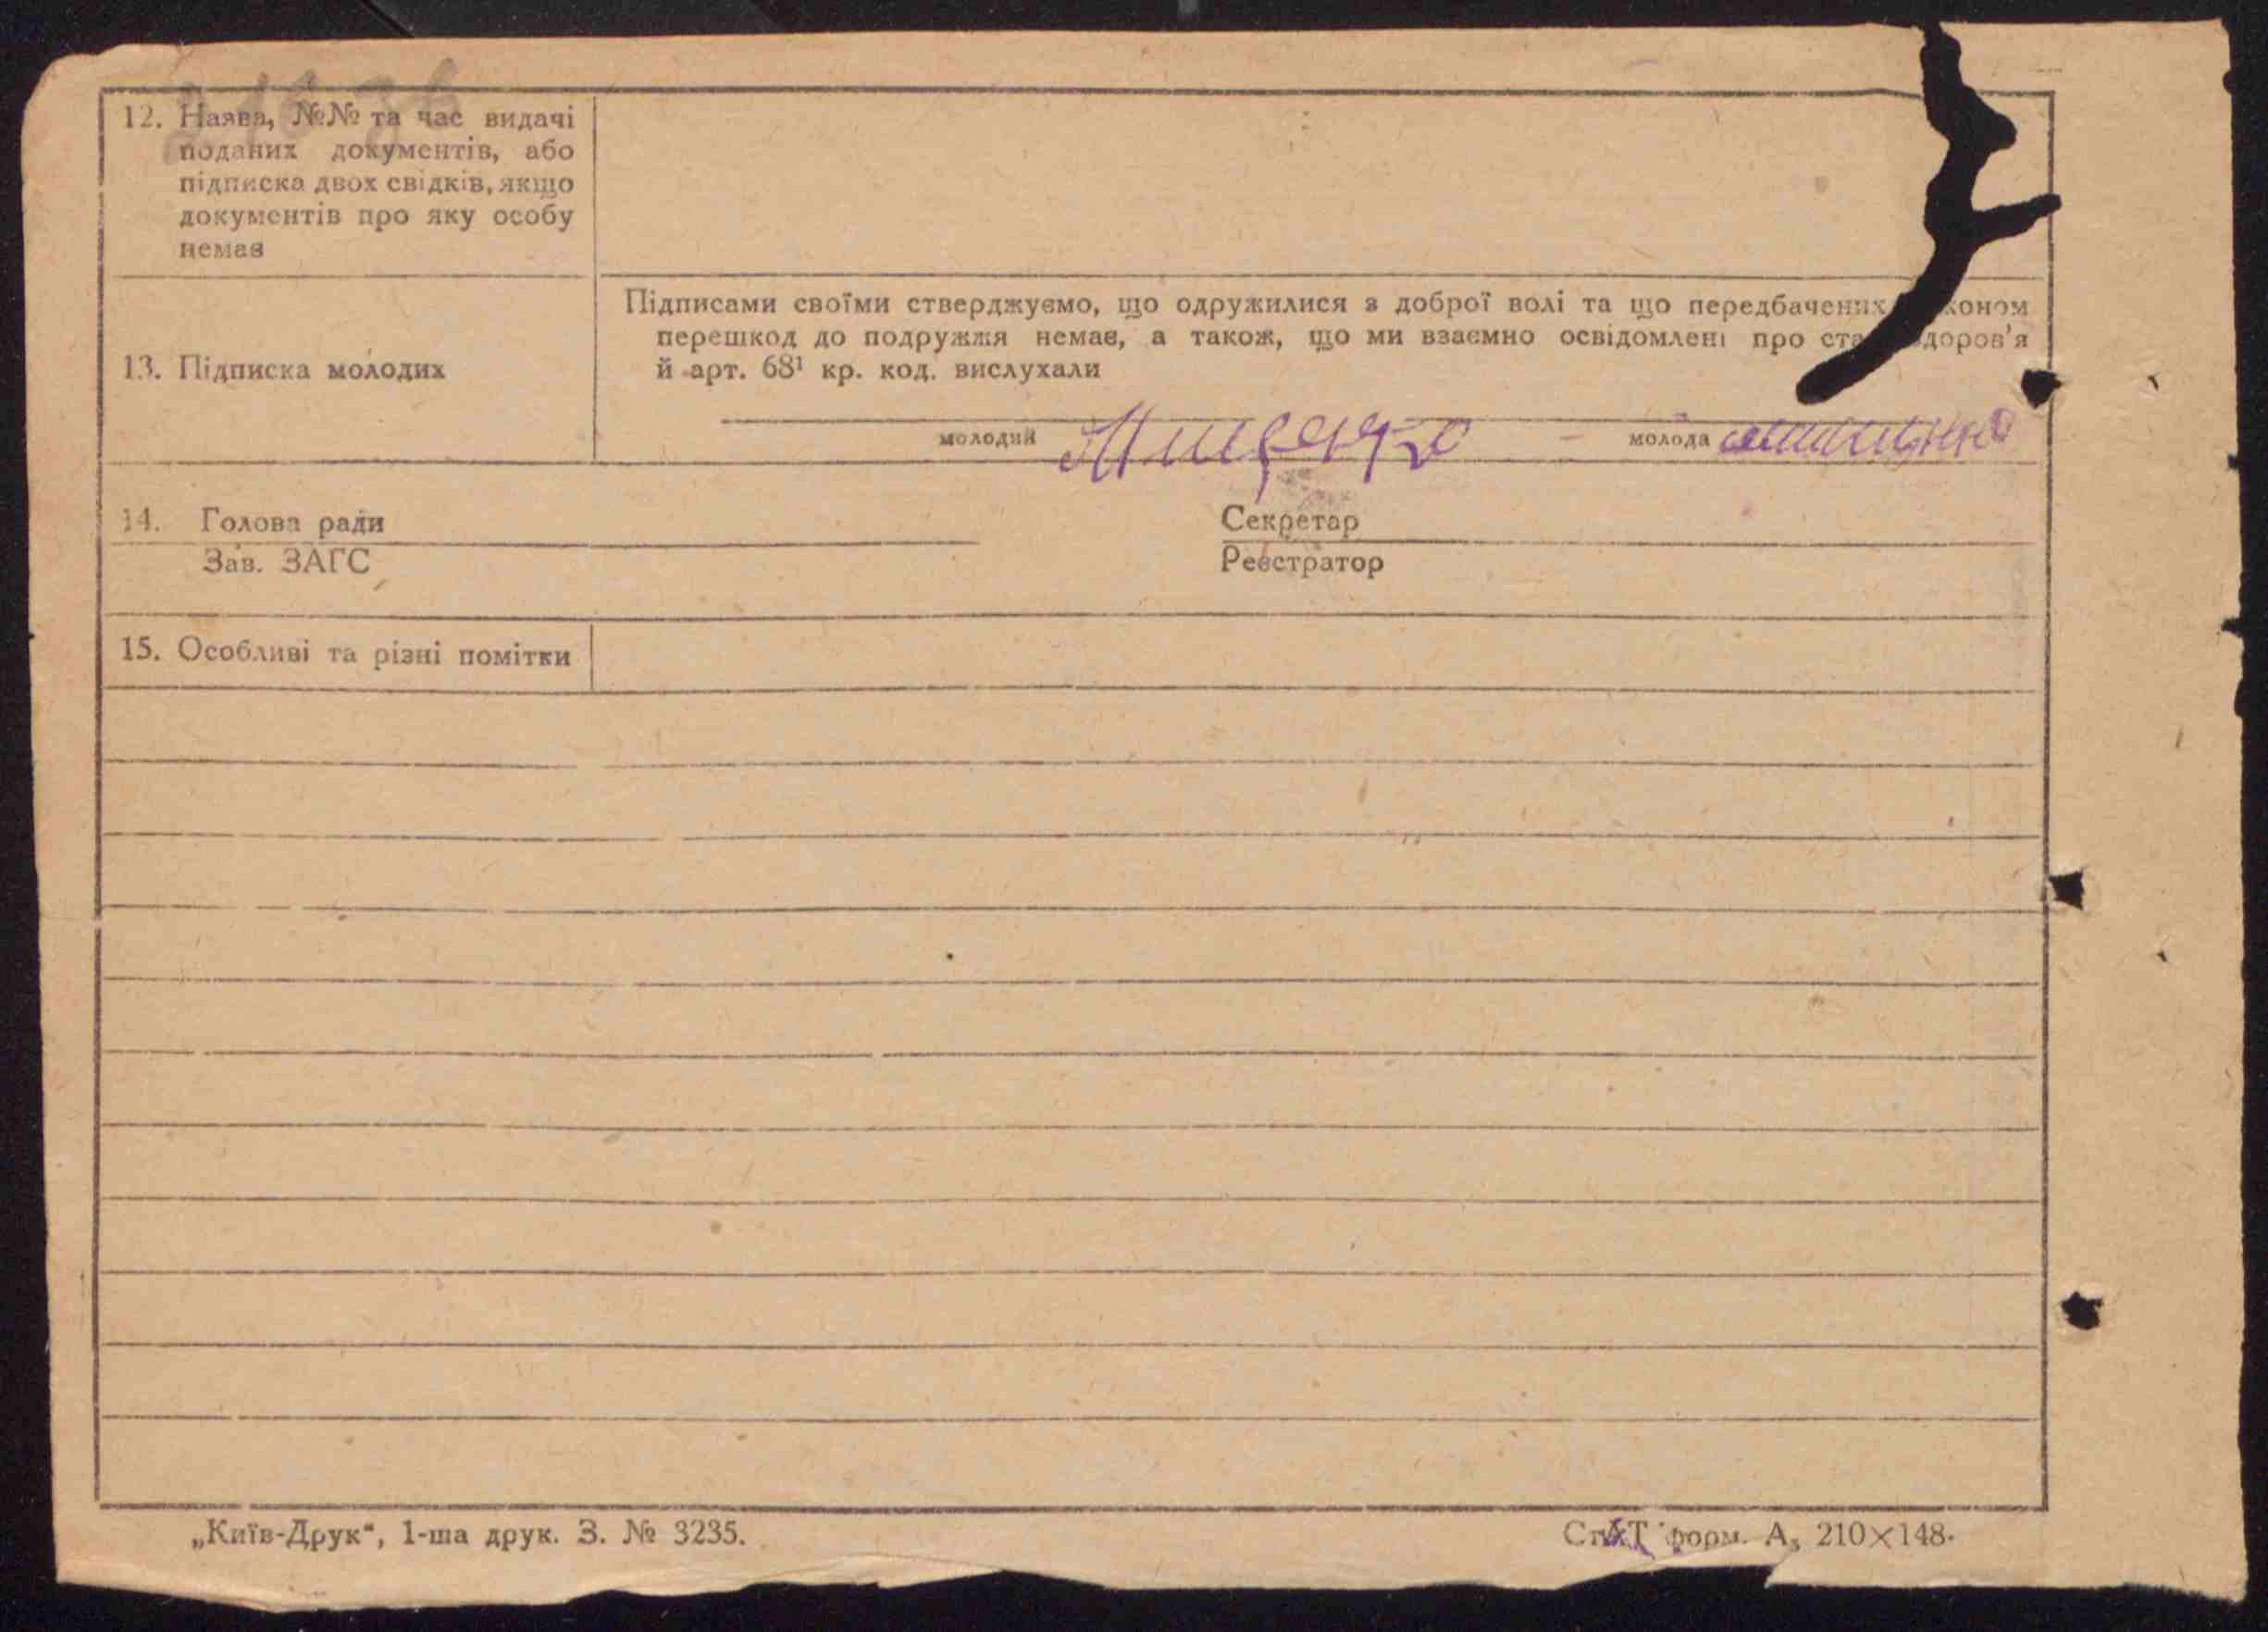 12. Наява, №№ та час видачі
поданих документів, або
підписка двох свідків, якщо
документів про яку особу
немає
Підписами своїми стверджуємо, що одружилися з доброї волі та що передбачених коном
перешкод до подружжя немає, а також, що ми взаємно освідомлені про ста доров'я
13. Підписка молодих
й арт. 68¹ кр. код. вислухали
молодий Мищенко молода
14. Голова ради Секретар
Зав. ЗАГС Реєстратор
15. Особливі та різні помітки
„Київ-Друк“, 1-ша друк. З. № 3235.
форм. А₅ 210×148.